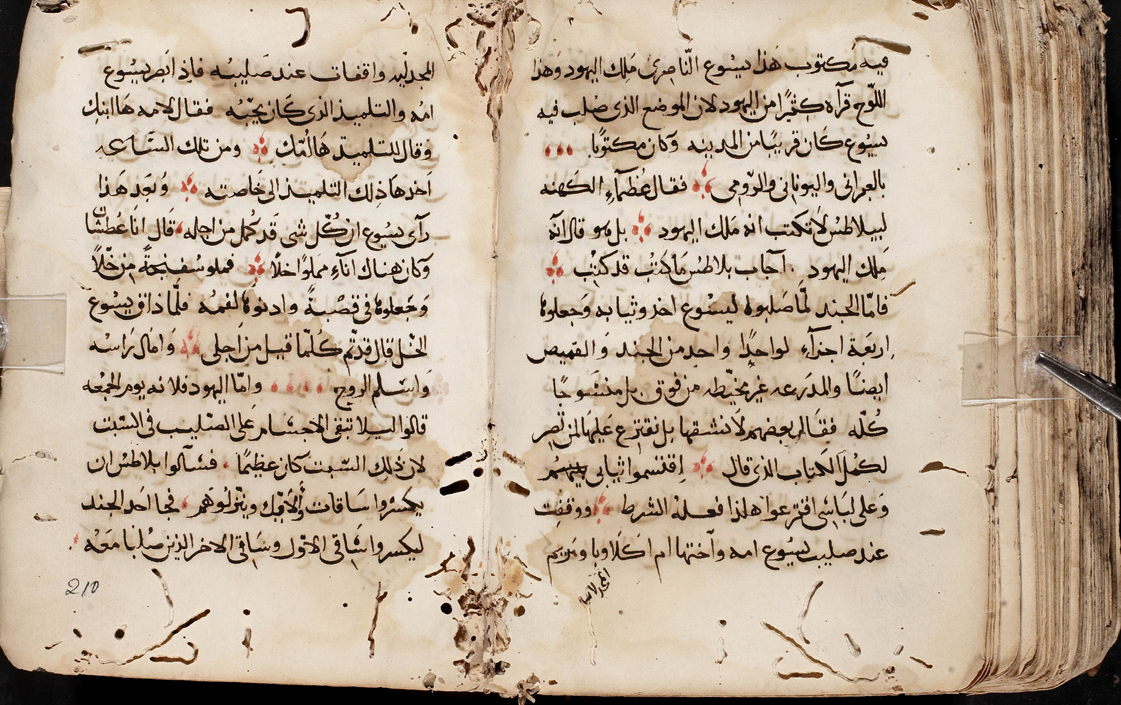 فيه مكتوب هذا يسوع الناصرى ملك اليهود وهذا
اللوح قرآه كثيرًا من اليهود لان الموضع الذى صلب فيه
يسوع كان قريبًا من المدينه وكان مكتوبًا
بالعبرانى واليونانى والرومى فقال عُظمآء الكهنه
لبيلاطس لا تكتب انه ملك اليهود بل هو قال انه
ملك اليهود . اجاب بلاطس ما كتبت قد كتبت
فامّا الجند لمّا صلبوه ليسوع اخذوا ثيابه وجعلوه
اربعة اجزآء لواحدٍ واحد من الجند والقميص
ايضًا والمدرعه غير مخيّطه من فوق بل منسوجًا
كُلّه فقال بعضهم لا ننشقها بل نقترع عليها لمن تصر
لكمل الكتاب الذى قال اقتسموا ثيابى بينهم
وعلى لباسى اقترعوا هذا فعله الشرط ووقفت
عند صليب يسوع امه وآختها ام اكلاوبا ومريم
المجدلانيه
المجدليه واقفات عند صليبه فاذ ابصر يسوع
امه والتلميذ الذى كان يحبّه فقال لامه ها ابنك
وقال للتلميذ ها امّك ومن تلك الساعه
اخدها ذلك التلميذ الى خاصته وبعد هذا
رآى يسوع ان كُلّ شى قد كُمل من اجله قال انا عطشان
وكان هناك انآء مملوًا خلًا فملو سفنجةً من خلًا
وجعلوها فى قصبةً وادنوها لفمه فلمّا ذاق يسوع
الخل قال قد تم كُلّما قيل من اجلى وامال رأسه
واسلم الروح وامّا اليهود فلانه يوم الجمعه
قالوا ليلا تبقى الاجسام على الصليب فى السبت
لان ذلك السبت كان عظيمًا فسآلوا بلاطس ان
يكسروا ساقات اولايك وينزلوهم فجا احد الجند
ليكسروا ساقى الاول وساقى الاخر الذين صُلبا معه
210